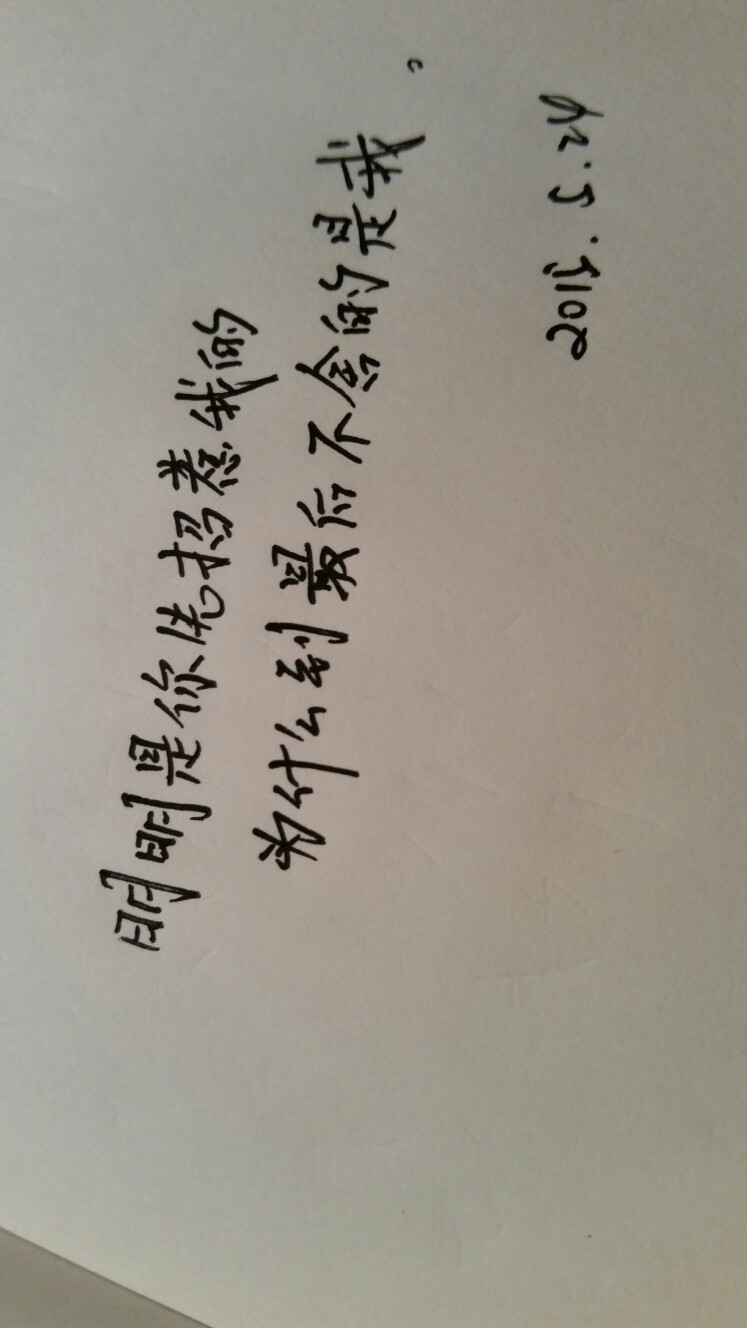 明明是你先招惹我的
为什么到最后不舍的是我。
2015.5.24